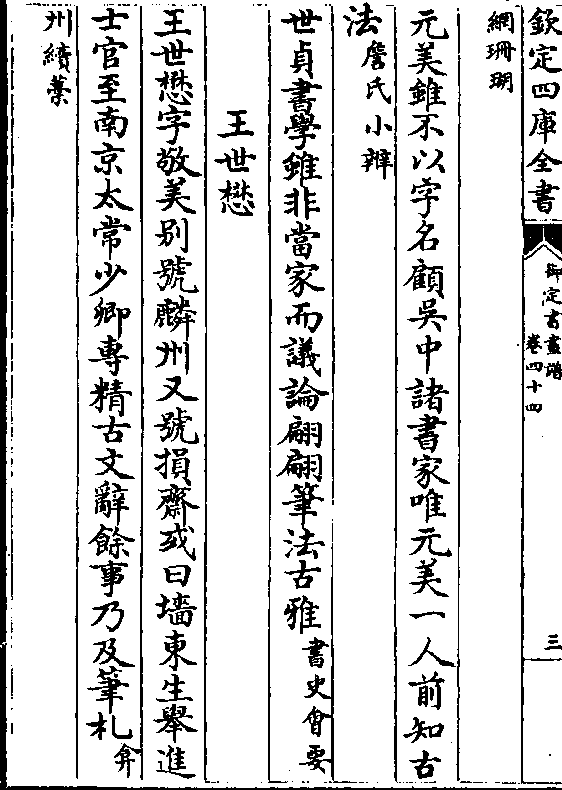 欽定四庫全書
御定書畫譜
卷四十四
三
網珊瑚
元美雖不以字名顧吳中諸書家唯元美一人前知古
法詹氏小辯
世貞書學雖非當家而議論翩翩筆法古雅書史會要
王世懋
王世懋字敬美别號麟州又號損齋或曰墻東生舉進
士官至南京太常少卿專精古文辭餘事乃及筆札弇
州續藁